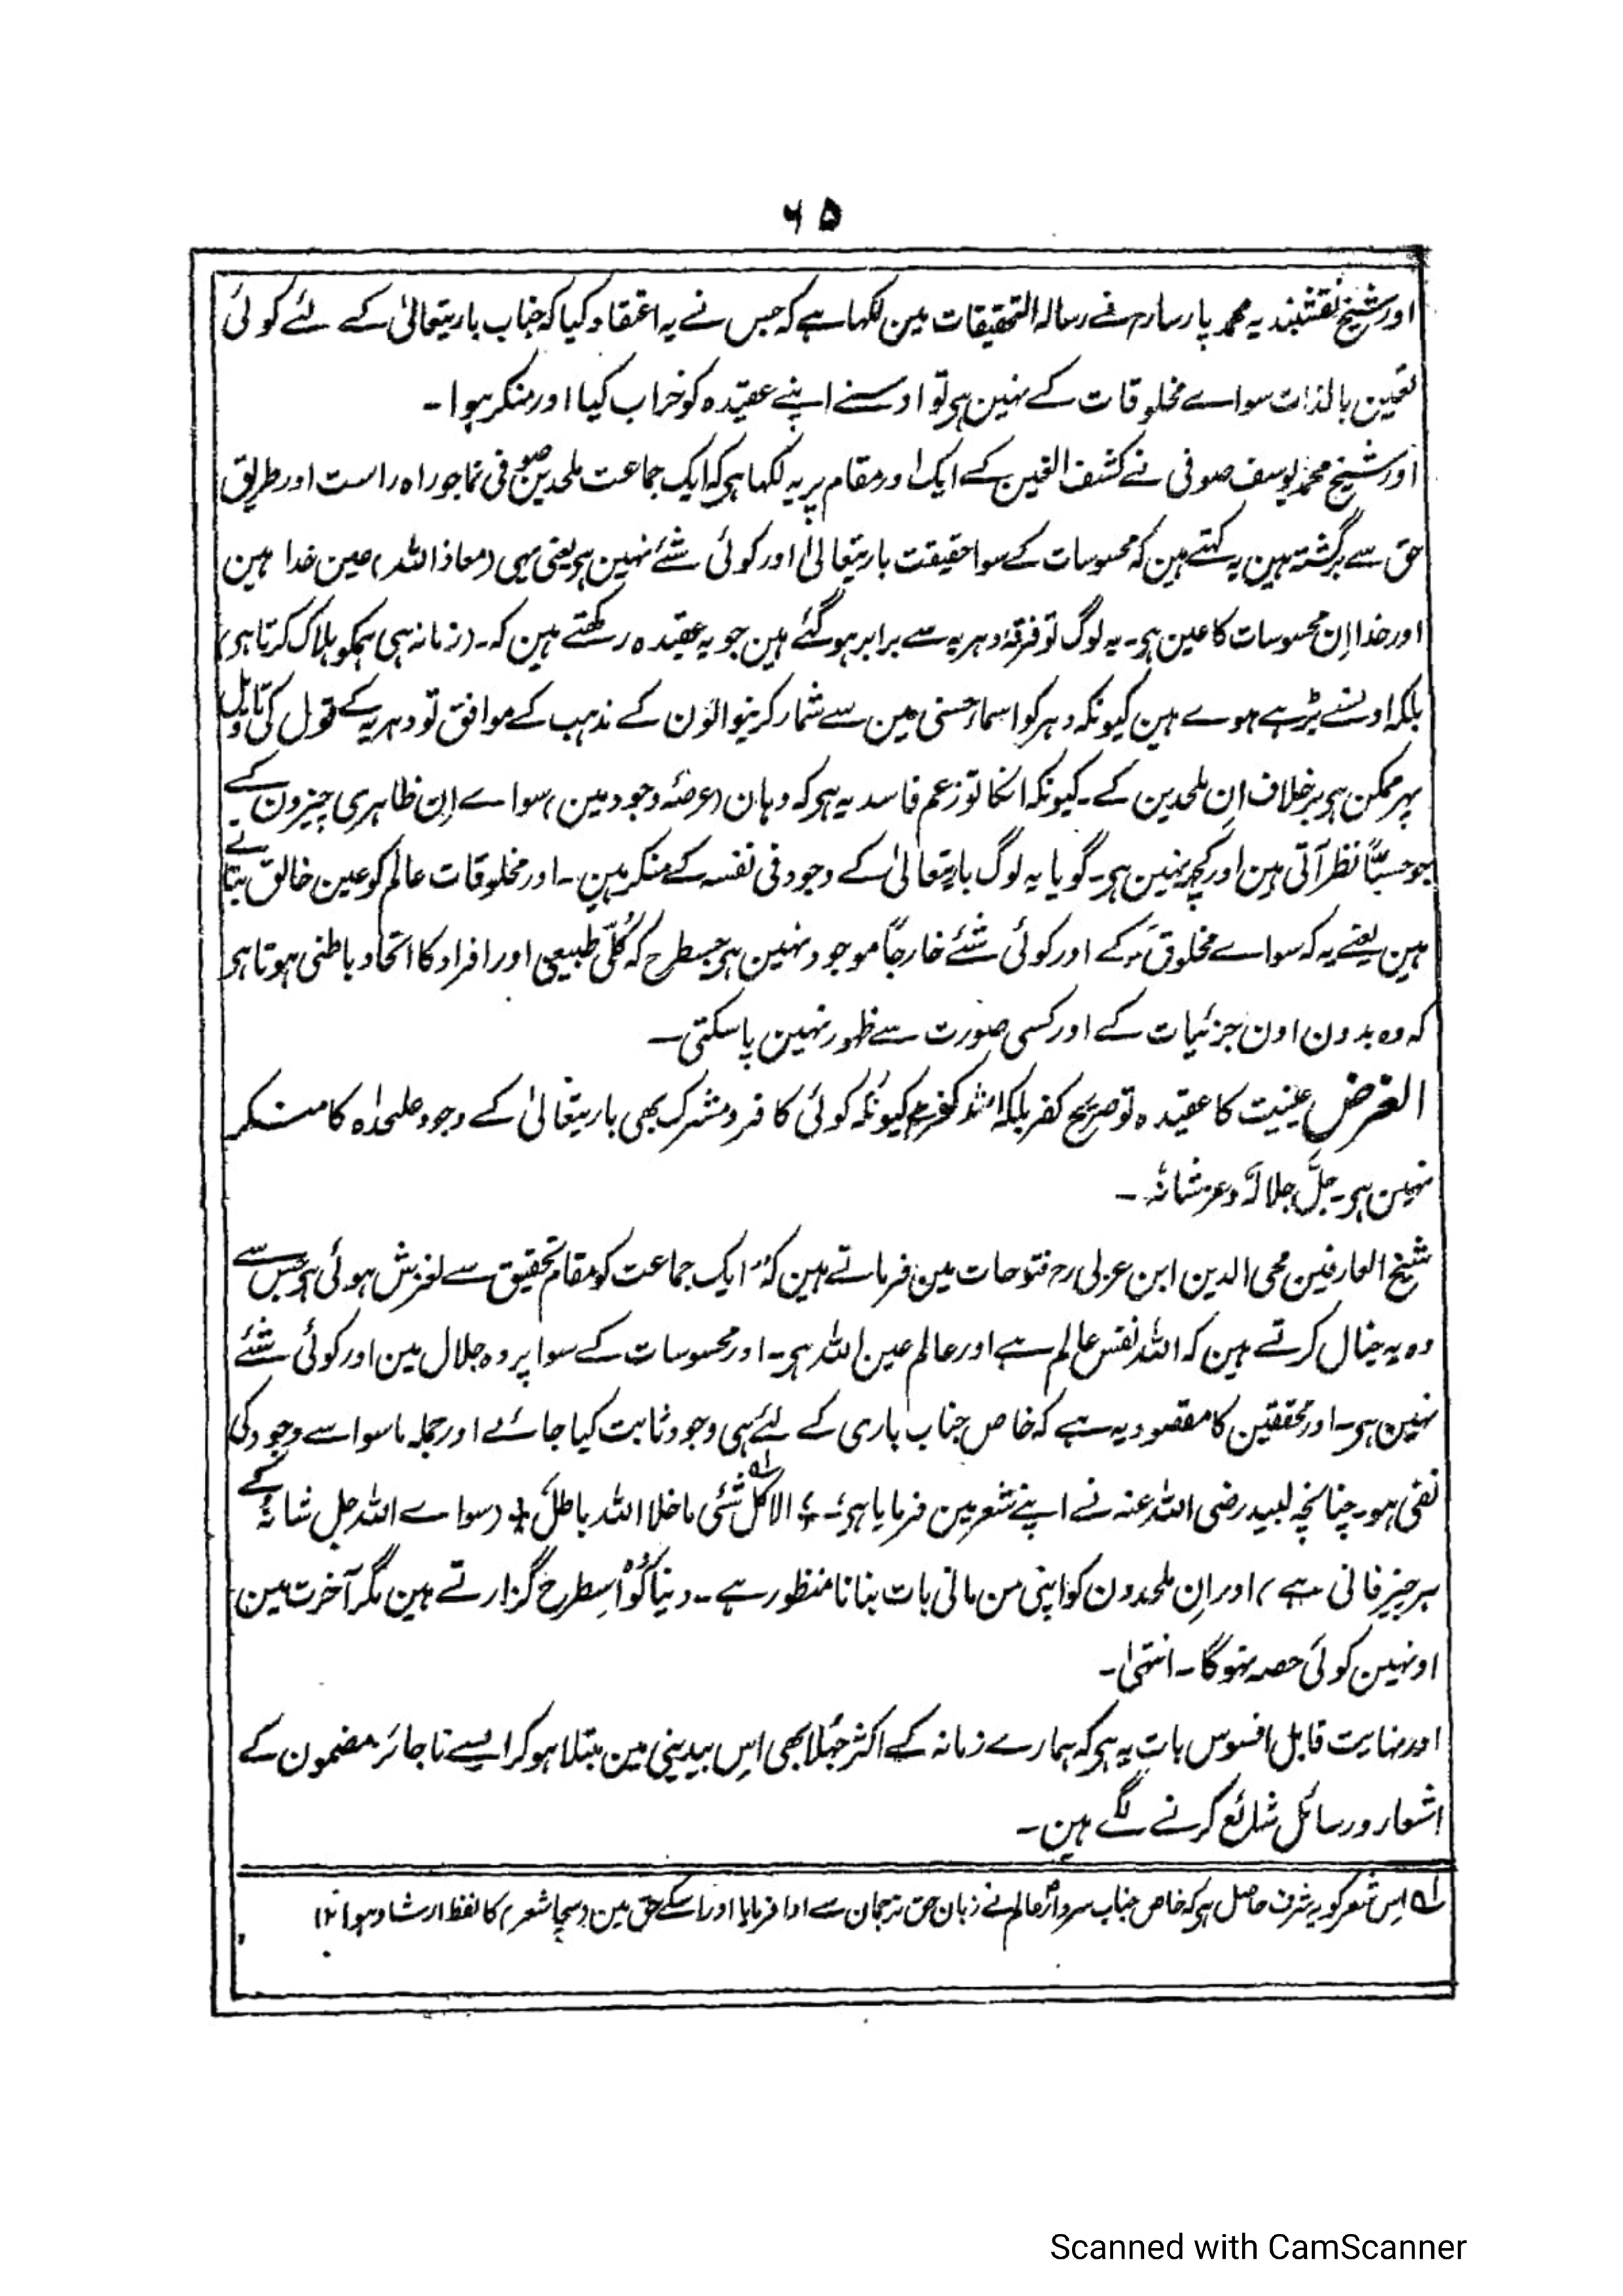 ۶۵
اور شیخ نقشبندیہ محمد پارسا رح نے رسالہ التحقیقات مین لکھا ہے کہ جس نے یہ اعتقاد کیا کہ جناب باریتعالیٰ کے لئے کوئی
تعین بالذات سواے مخلوقات کے نہین ہی تو اوسنے اپنے عقیدہ کو خراب کیا اور منکر ہوا ۔
اور شیخ محمد یوسف صوفی نے کشف الغین کے ایک اور مقام پر یہ لکھا ہی کہ ایک جماعت ملحدین صوفی نما جو راہ راست اور طریق
حق سے برگشتہ ہین یہ کہتے ہین کہ محسوسات کے سوا حقیقت باریتعالیٰ اور کوئی شئے نہین ہی یعنی یہی (معاذ اللہ) عین خدا ہین
اور خدا اِن محسوسات کا عین ہی۔ یہ لوگ تو فرقۂ دہریہ سے برابر ہو گئے ہین جو یہ عقیدہ رکھتے ہین کہ۔ (زمانہ ہی ہمکو ہلاک کرتا ہی)
بلکہ اونسے بڑہے ہوے ہین کیونکہ دہر کو اسماء حسنیٰ مین سے شمار کرنیوالون کے مذہب کے موافق تو دہریہ کے قول کی تاویل
پہر ممکن ہی برخلاف اِن ملحدین کے۔ کیونکہ انکا تو زعم فاسد یہ ہی کہ وہان (عرصۂ وجود مین) سواے اِن ظاہری چیزون کے
جو حسّاً نظر آتی ہین اور کچھ نہین ہی۔ گویا یہ لوگ باریتعالیٰ کے وجود فی نفسہ کے منکر ہین ۔ اور مخلوقات عالم کو عین خالق بتاتے
ہین یعنے یہ کہ سواے مخلوق کے اور کوئی شئے خارجاً موجود نہین ہی جسطرح کہ کُلّی طبیعی اور افراد کا اتحاد باطنی ہوتا ہی
کہ وہ بدون اون جزئیات کے اور کسی صورت سے ظہور نہین پا سکتی ۔
الغرض عینیت کا عقیدہ تو صریح کفر بلکہ اشد کفر ہی کیونکہ کوئی کافر و مشرک بھی باریتعالیٰ کے وجود علیحدٰہ کا منکر
نہین ہی۔ جلَّ جلالہٗ و عز شانہٗ ۔
شیخ العارفین محی الدین ابن عربی رح فتوحات مین فرماتے ہین کہ "ایک جماعت کو مقام تحقیق سے لغزش ہوئی ہی جس سے
وہ یہ خیال کرتے ہین کہ اللہ نفس عالم ہے اور عالم عین اللہ ہی۔ اور محسوسات کے سوا پردہ جلال مین اور کوئی شئے
نہین ہی۔ اور محققین کا مقصود یہ ہے کہ خاص جناب باری کے لئے ہی وجود ثابت کیا جائے اور جملہ ماسوا سے وجود کی
نفی ہو۔ چنانچہ لبید رضی اللہ عنہ نے اپنے شعر مین فرمایا ہی:۔ ؏ الا کل شئی ما خلا اللہ باطل ٗلہ (سواے اللہ جل شانہٗ کے
ہر چیز فانی ہے) اور اِن ملحدون کو اپنی من مانی بات بنانا منظور ہے ۔ دنیا کو اُسطرح گزارتے ہین مگر آخرت مین
اونہین کوئی حصہ نہوگا ۔ انتہیٰ ۔
اور نہایت قابل افسوس بات یہ ہی کہ ہمارے زمانہ کے اکثر جہلا بھی اِس بیدینی مین مبتلا ہو کر ایسے ناجائز مضمون کے
اشعار و رسائل شائع کرنے لگے ہین ۔
لہ اِس شعر کو یہ شرف حاصل ہی کہ خاص جناب سردار عالم نے زبان حق ترجمان سے ادا فرمایا اور اسکے حق مین (سچا شعر) کا لفظ ارشاد ہوا ۱۲
Scanned with CamScanner